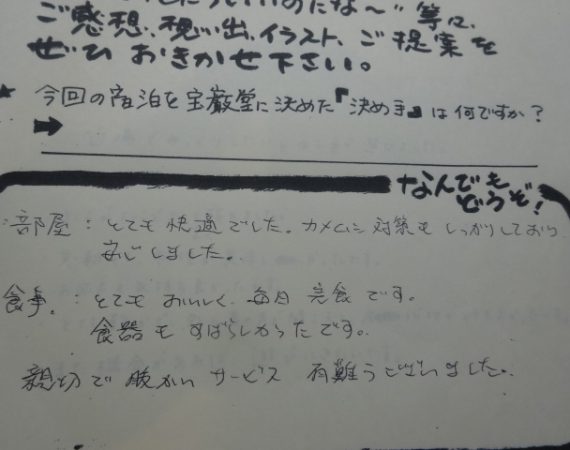 ご感想、思い出、イラスト、ご提案を
ぜひ おきかせ下さい。
★ 今回の宿泊を宝巌堂に決めた『決め手』は何ですか？
➡
なんでも
どうぞ！
・部屋：とても快適でした。カメムシ対策もしっかりしており
安心しました。
食事：とてもおいしく、毎日完食です。
食器もすばらしかったです。
親切で暖かいサービス 有難うございました。